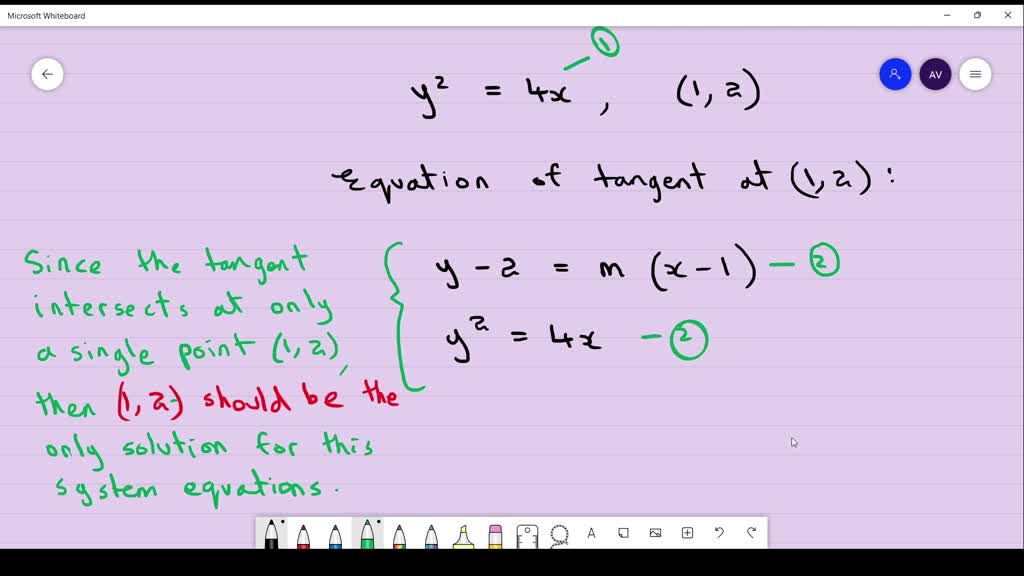 Microsoft Whiteboard
①
y² = 4x , (1, 2)
AV
Equation of tangent at (1, 2) :
Since the tangent
intersects at only
a single point (1, 2) ,
then (1, 2) should be the
only solution for this
system equations.
y - 2 = m (x - 1) - ②
y² = 4x - ②
A